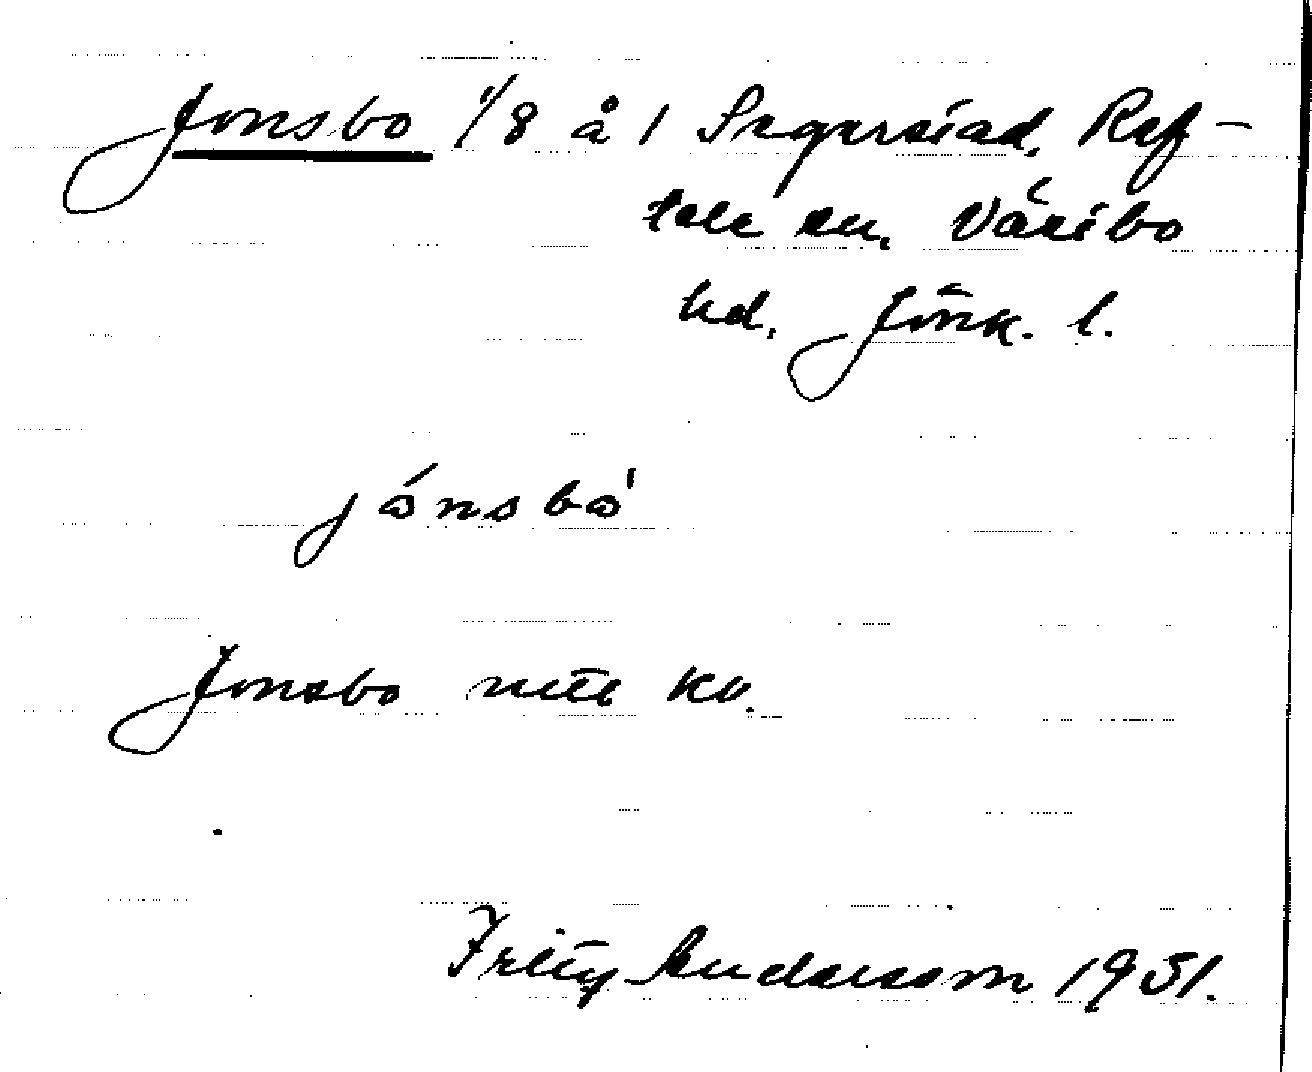 Jonsbo 1/8 å 1 Segerstad, Ref-
tele sn, Västbo
hd, Jönk. l.
jónsbo'
Jonsbo mtl kv.
Fritz Andersson 1951.